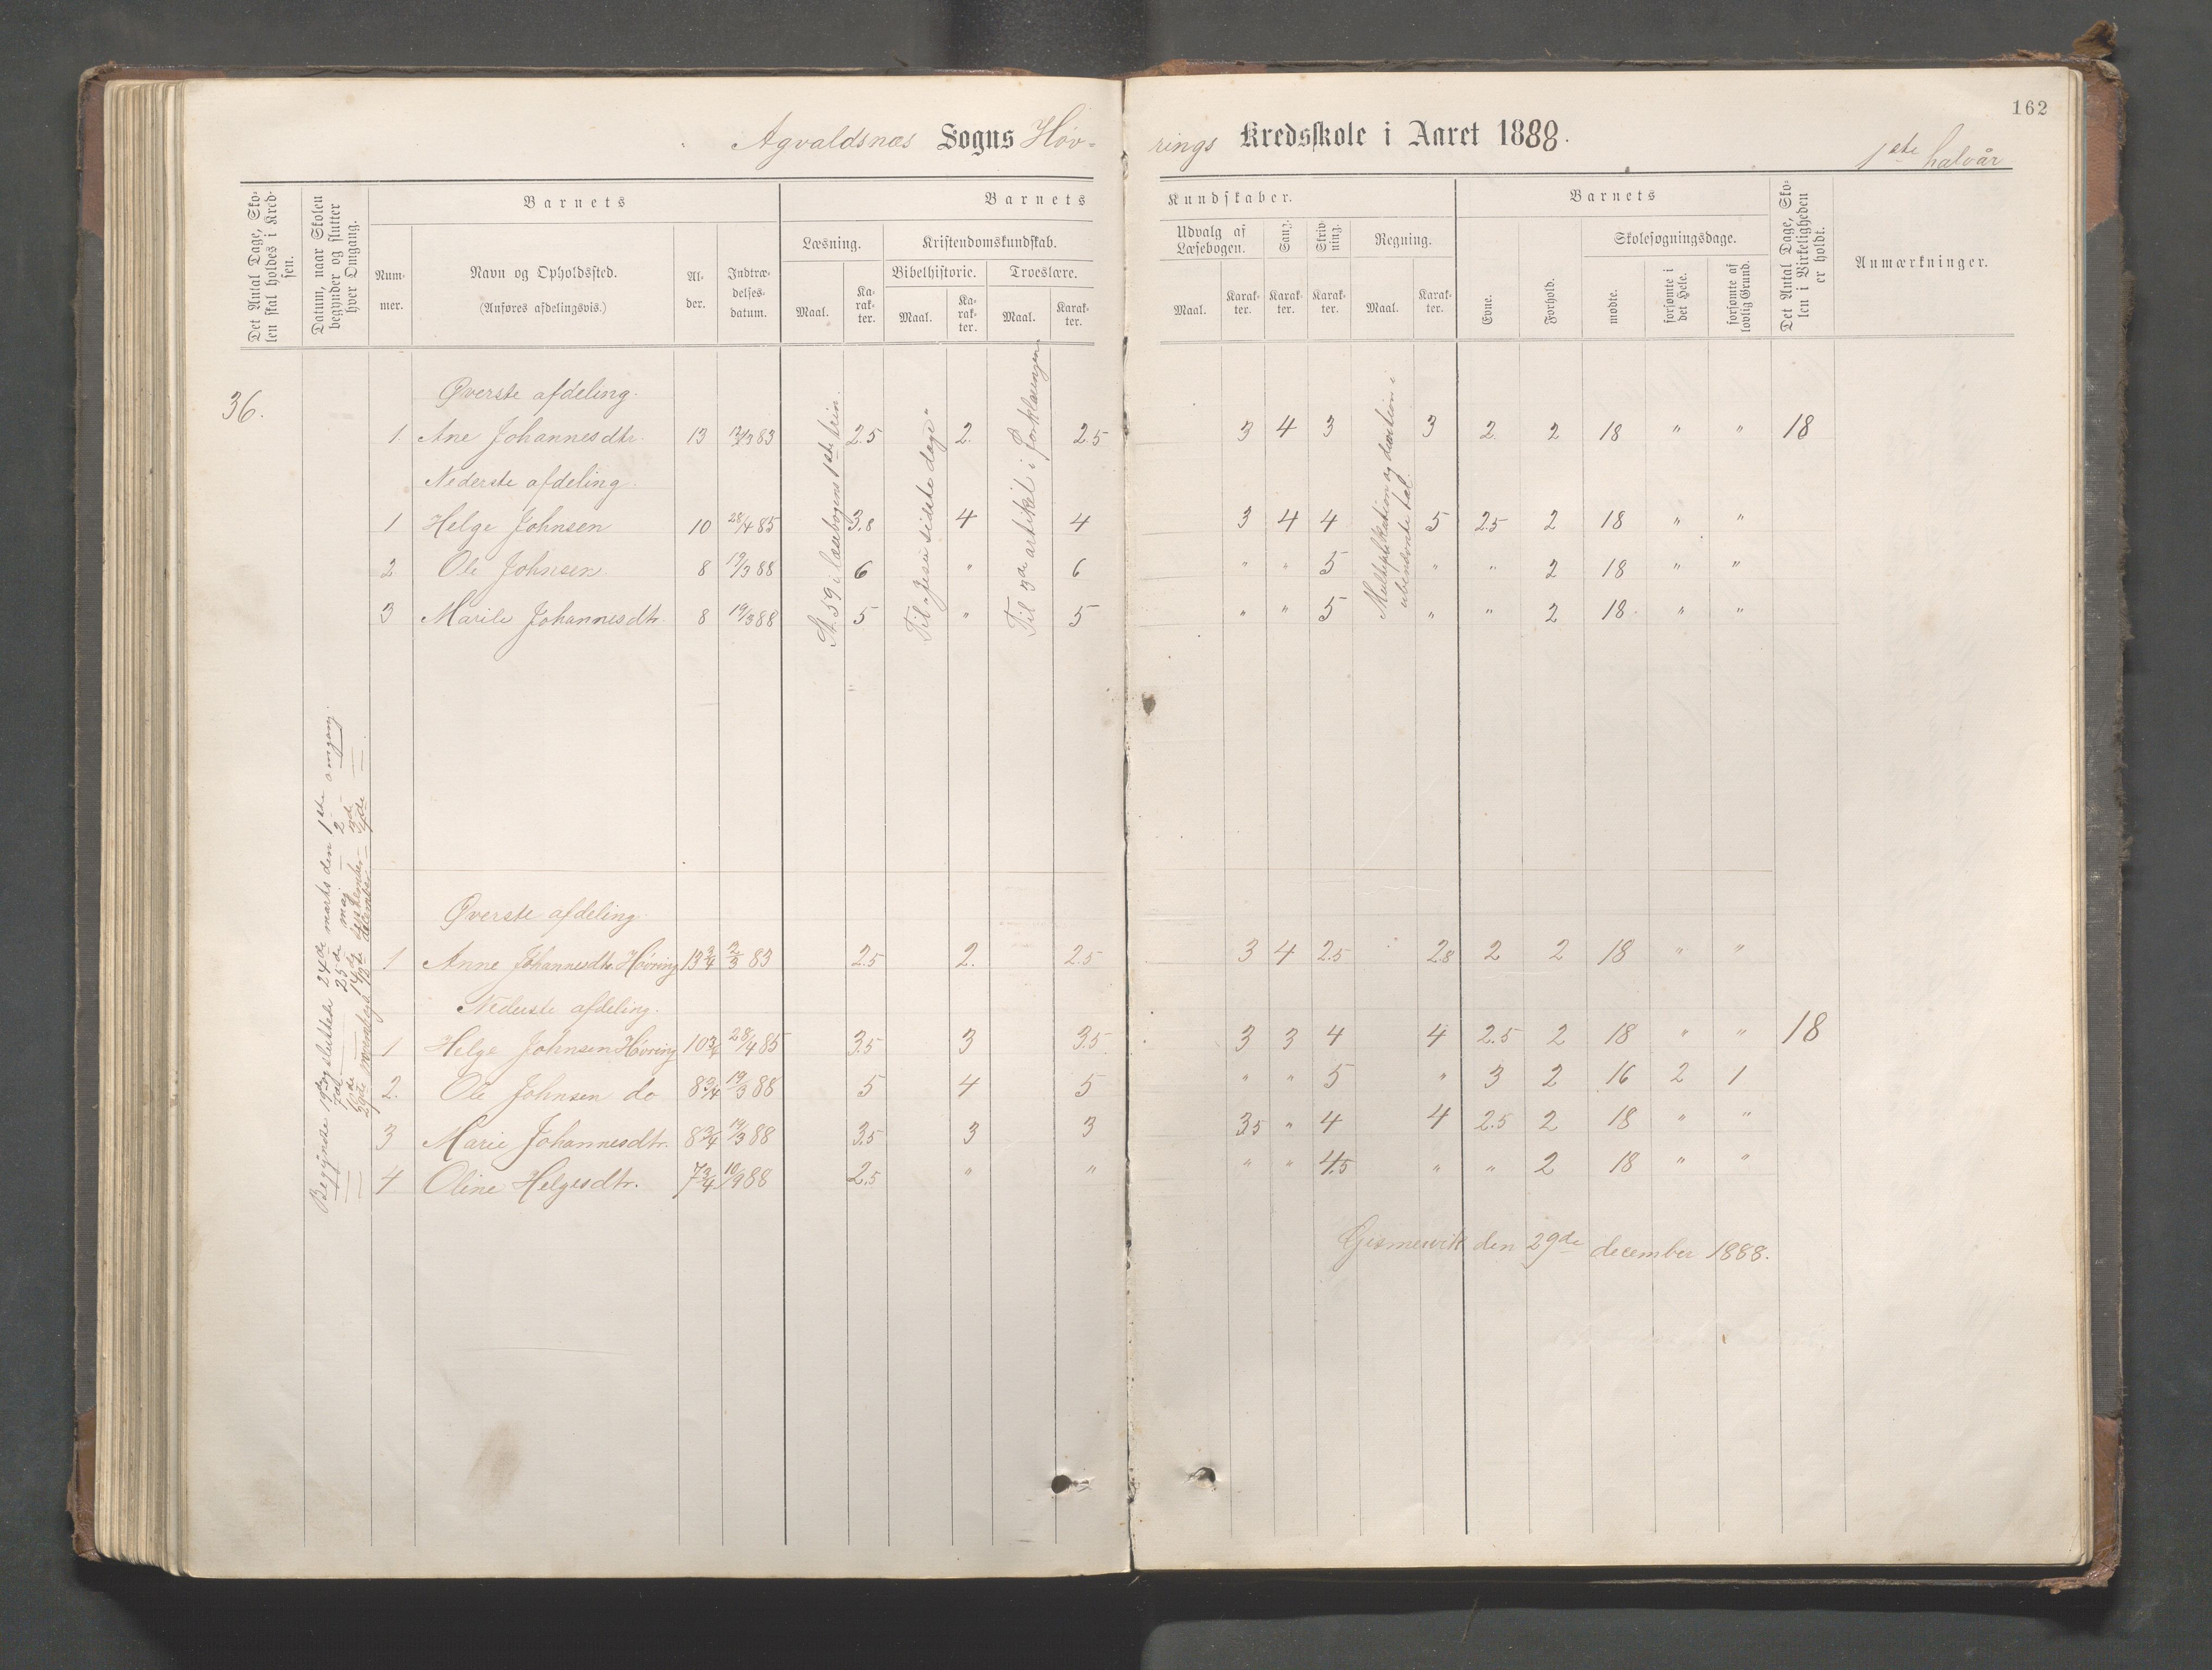 162
Agvaldsnæs Sogns Høv-
rings Kredsskole i Aaret 1888.
1ste halvår
Det Antal Dage, Sko-
len skal holdes i Kred-
sen.
Datum, naar Skolen
begynder og slutter
hver Omgang.
Barnets
Num-
mer.
Navn og Opholdssted.
(Anføres afdelingsvis.)
Al-
der.
Indtræ-
delses-
datum.
Barnets
Læsning.
Maal.
Ka-
rak-
ter.
Kristendomskundskab.
Bibelhistorie.
Maal.
Ka-
rak-
ter.
Troeslære.
Maal.
Karak-
ter.
Kundskaber.
Udvalg af
Læsebogen.
Maal.
Karak-
ter.
Sang.
Karak-
ter.
Skriv-
ning.
Karak-
ter.
Regning.
Maal.
Karak-
ter.
Barnets
Evne.
Forhold.
Skolesøgningsdage.
mødte.
forsømte i
det Hele.
forsømte af
lovlig Grund.
Det Antal Dage, Sko-
len i Virkeligheden
er holdt.
Anmærkninger.
36.
Øverste afdeling.
1. Ane Johannesdtr. 13 83 2.5 2. 2.5 3 4 3 3 2 2 18 " " 18
Nederste afdeling.
1 Helge Johnsen 10 28/4 85 3.8 4 4 3 4 4 5 2.5 2 18 " "
2 Ole Johnsen 8 19/3 88 6 " 6 " " 5 " " 2 18 " "
3 Marile Johannesdtr. 8 19/3 88 5 " 5 " " 5 " " 2 18 " "
St. 59 i læsebogens 1ste trin.
Til "Jesu sidste dage"
Til 3de artikel i forklaringen
Multiplikation og division i
ubenævnte tal.
Begyndte 19de og sluttede 24de marts den 1ste omgang.
7de — 25de maj — 2
10de — 3de
29de november — december — 4de
Øverste afdeling.
1 Anne Johannesdtr. Høvring 13 3/4 2/3 83 2.5 2. 2.5 3 4 2.5 2.8 2 2 18 " "
Nederste afdeling.
1 Helge Johnsen Høvring 10 3/4 28/4 85 3.5 3 3.5 3 3 4 4 2.5 2 18 " " 18
2. Ole Johnsen do 8 3/4 19/3 88 5 4 5 " " 5 " 3 2 16 2 1
3 Marie Johannesdtr. 8 3/4 19/3 88 3.5 3 3 3.5 " 4 4 2.5 2 18 " "
4 Oline Helgesdtr. 7 3/4 10/9 88 2.5 " " " " 4.5 " " 2 18 " "
Gismervik den 29de december 1888.